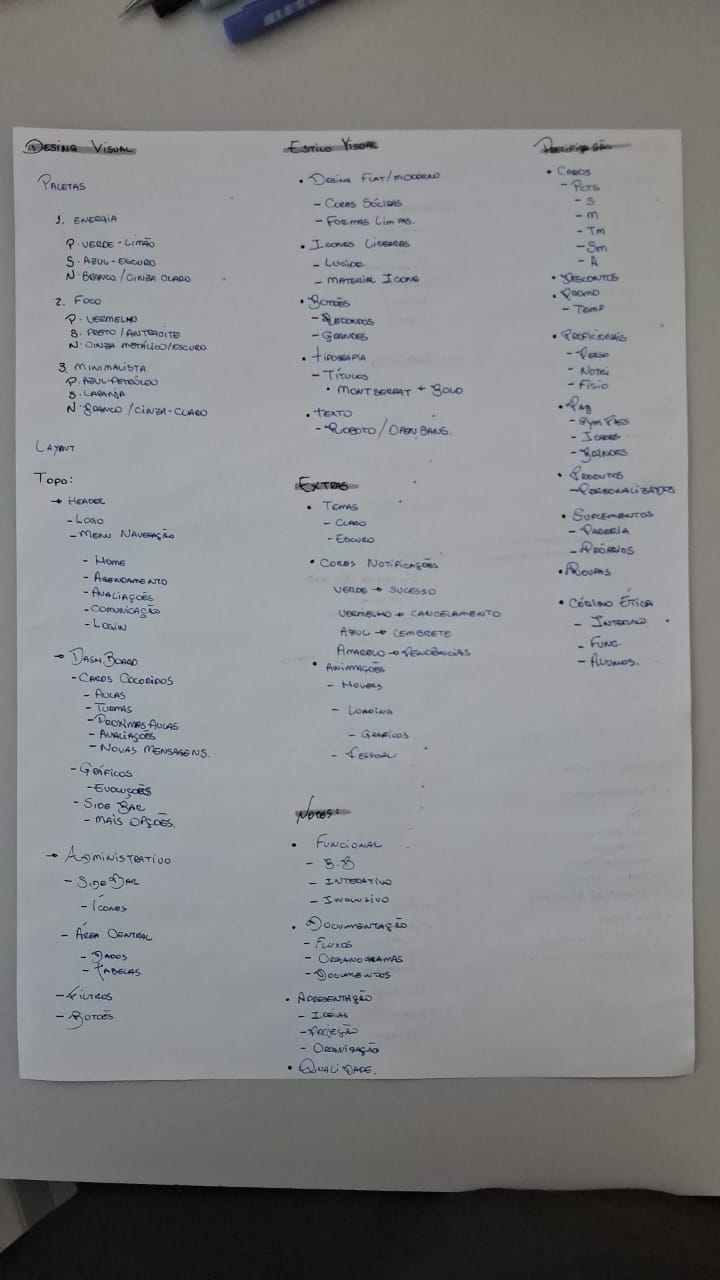 DESING VISUAL
PALETAS
1. ENERGIA
P. VERDE-LIMÃO
S. AZUL-ESCURO
N. BRANCO/CINZA CLARO
2. FOCO
P. VERMELHO
S. PRETO/ANTRACITE
N. CINZA METÁLICO/ESCURO
3. MINIMALISTA
P. AZUL-PETRÓLEO
S. LARANJA
N. BRANCO/CINZA-CLARO
LAYOUT
TOPO:
→ HEADER
- LOGO
- MENU NAVEGAÇÃO
- HOME
- AGENDAMENTO
- AVALIAÇÕES
- COMUNICAÇÃO
- LOGIN
→ DASHBOARD
- CARDS COLORIDOS
- AULAS
- TURMAS
- PROXIMAS AULAS
- AVALIAÇÕES
- NOVAS MENSAGENS.
- GRÁFICOS
- EVOLUÇÕES
- SIDE BAR
- MAIS OPÇÕES.
→ ADMINISTRATIVO
- SIDE BAR
- ÍCONES
- ÁREA CENTRAL
- DADOS
- TABELAS
- FILTROS
- BOTÕES
ESTILO VISUAL
• DESING FLAT/MODERNO
- CORES SÓLIDAS
- FORMAS LIMPAS.
• ICONES LINEARES
- LUCIDE
- MATERIAL ICONS
• BOTÕES
- REDONDOS
- GRANDES
• TIPOGRAFIA
- TÍTULOS
• MONTSERRAT + BOLD
• TEXTO
- ROBOTO/OPEN SANS.
EXTRAS
• TEMAS
- CLARO
- ESCURO
• CORES NOTIFICAÇÕES
VERDE → SUCESSO
VERMELHO → CANCELAMENTO
AZUL → LEMBRETE
AMARELO → PENDÊNCIAS
• ANIMAÇÕES
- HOVERS
- LOADING
- GRÁFICOS
- PESSOAL
NOTAS:
• FUNCIONAL
- B.B
- INTERATIVO
- INCLUSIVO
• DOCUMENTAÇÃO
- FLUXOS
- ORGANOGRAMAS
- DOCUMENTOS
• APRESENTAÇÃO
- IDEIAS
- PROJEÇÃO
- ORGANIZAÇÃO
• QUALIDADE.
PRECIFICAÇÃO
• CARGOS
- PCTS
- S
- M
- TM
- SM
- A
• DESCONTOS
• PROMO
- TEMP
• PROFICIONAIS
- PERSO
- NUTRI
- FISIO
• PAG
- GYMPASS
- BRINDES
• PRODUTOS
- PERSONALIZADOS
• SUPLEMENTOS
- PARCERIA
- PRÓPRIOS
• ROUPAS
• CÓDIGO ÉTICA
- INTERNO
- FUNC.
- ALUNOS.